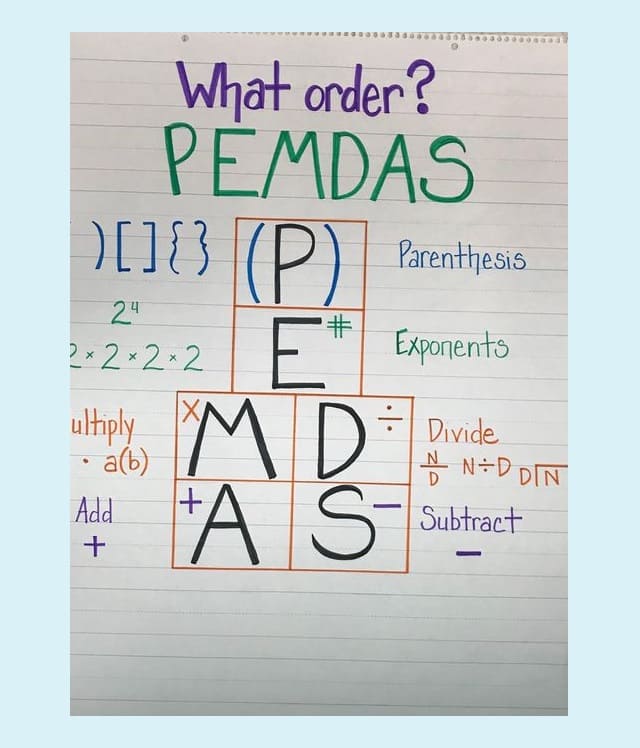 What order?
PEMDAS
)[]{} (P) Parenthesis
2⁴
2×2×2×2
E # Exponents
ultiply
· a(b)
× M D ÷ Divide
N/D N÷D D⟌N
Add
+
+ A S − Subtract
−